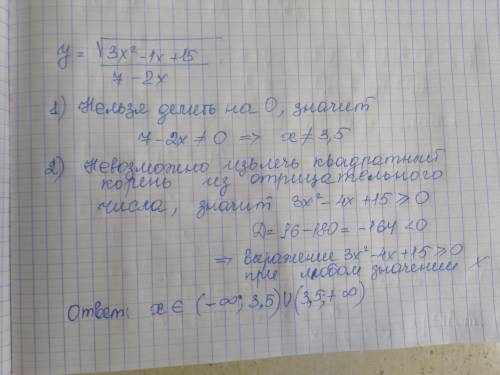 y = √3x² - 4x + 15
7 - 2x
1) Нельзя делить на 0, значит
7 - 2x ≠ 0 ⇒ x ≠ 3,5
2) Невозможно извлечь квадратный
корень из отрицательного
числа, значит 3x² - 4x + 15 ≥ 0
D = 16 - 180 = -164 < 0
⇒ выражение 3x² - 4x + 15 ≥ 0
при любом значении x
Ответ: x ∈ (-∞; 3,5) ∪ (3,5; +∞)